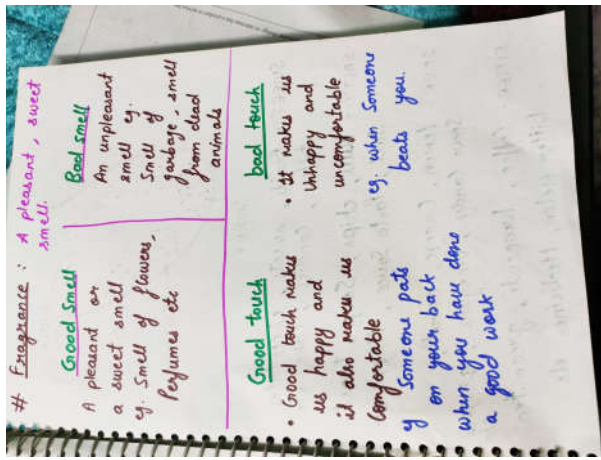 # Fragrance : A pleasant, sweet
smell.
Good Smell
A pleasant or
a sweet smell
eg. Smell of flowers,
Perfumes etc
Bad smell
An unpleasant
smell eg.
Smell of
garbage, smell
from dead
animals
Good touch
• Good touch makes
us happy and
it also makes us
Comfortable
eg Someone pats
on your back
when you have done
a good work
bad touch
• It makes us
Unhappy and
uncomfortable
eg. when Someone
beats you.